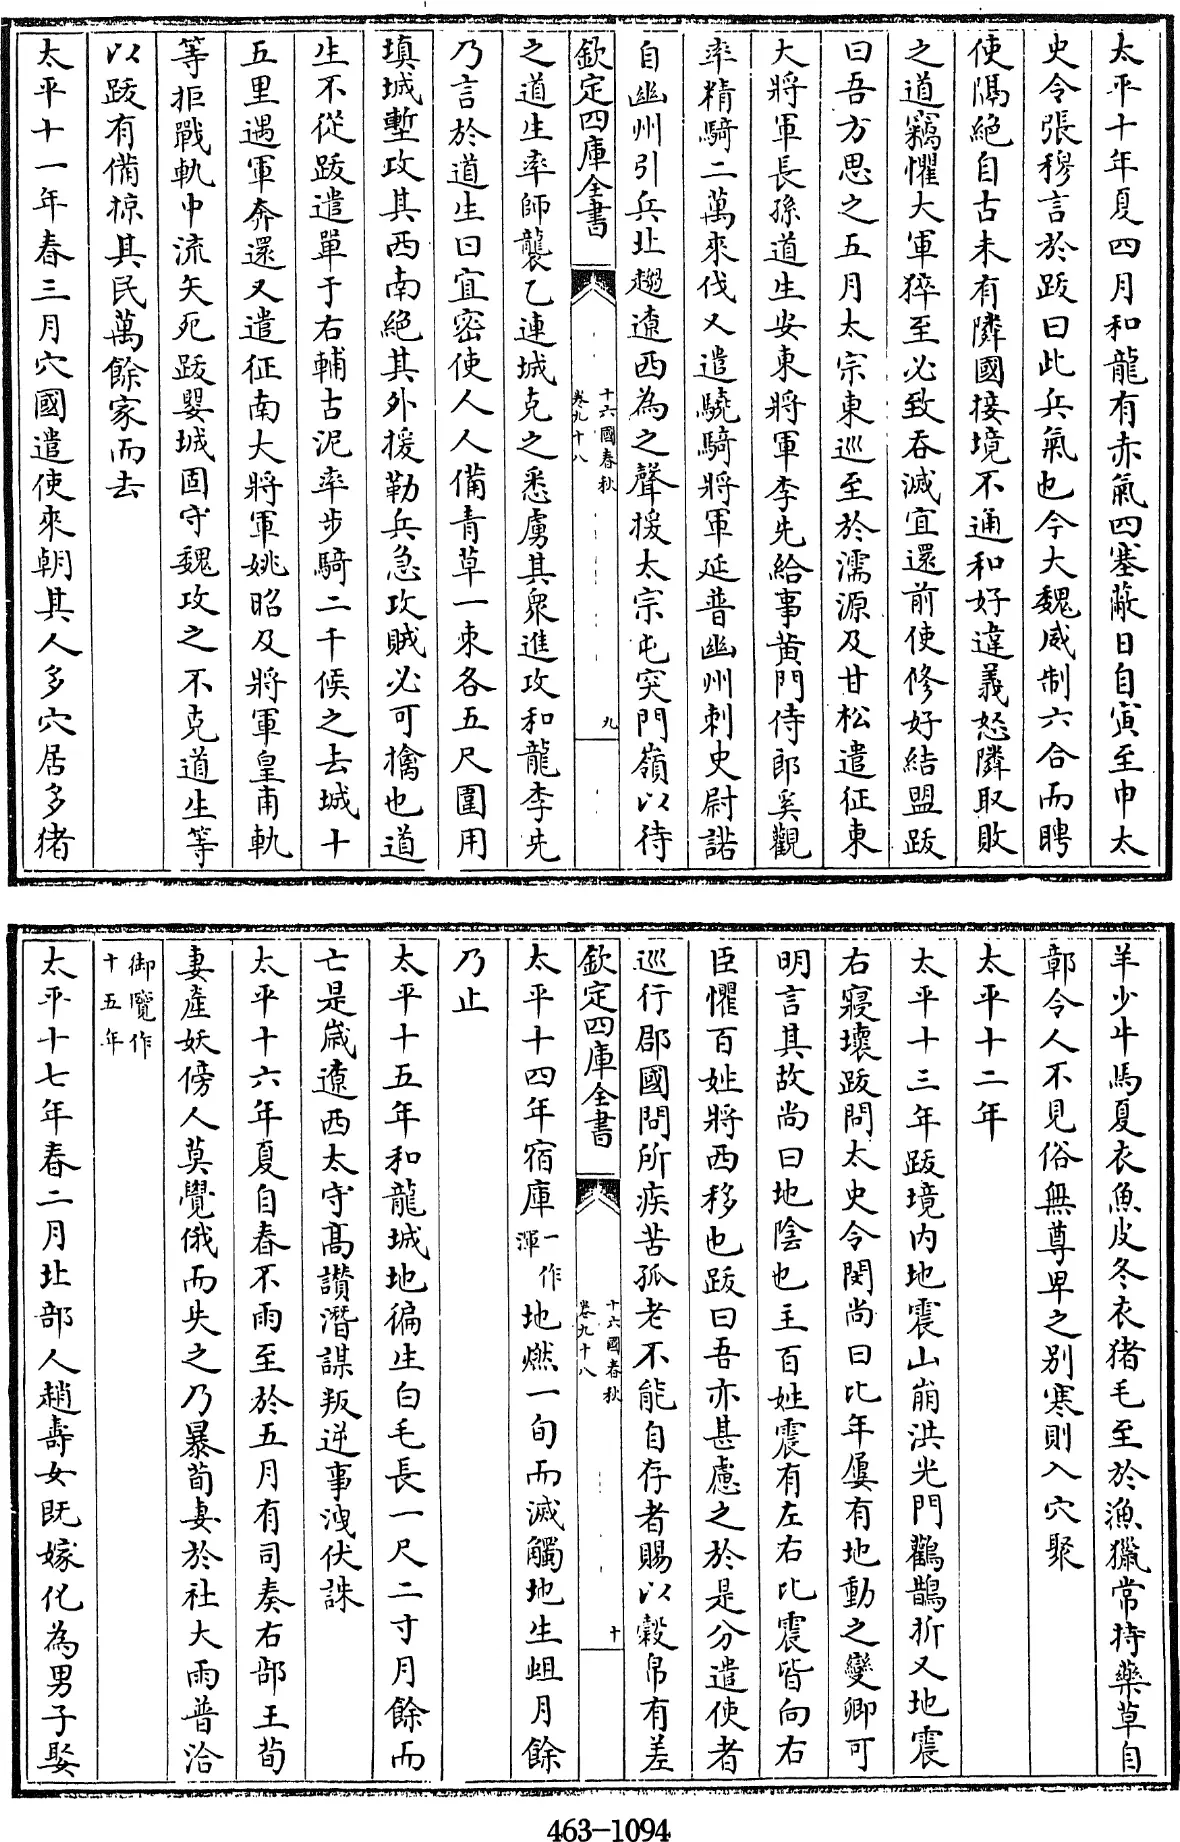 太平十年夏四月和龍有赤氣四塞蔽日自寅至申太
史令張穆言於跋曰此兵氣也今大魏威制六合而聘
使隔絶自古未有隣國接境不通和好違義怒隣取敗
之道竊懼大軍猝至必致吞滅宜還前使修好結盟跋
曰吾方思之五月太宗東巡至於濡源及甘松遣征東
大將軍長孫道生安東將軍李先給事黄門侍郎奚觀
率精騎二萬來伐又遣驍騎將軍延普幽州刺史尉諾
自幽州引兵北趨遼西為之聲援太宗屯突門嶺以待
欽定四庫全書
十六國春秋
卷九十八
九
之道生率師襲乙連城克之悉虜其衆進攻和龍李先
乃言於道生曰宜密使人人備青草一束各五尺圍用
填城塹攻其西南絶其外援勒兵急攻賊必可擒也道
生不從跋遣單于右輔古泥率步騎二千候之去城十
五里遇軍奔還又遣征南大將軍姚昭及將軍皇甫軌
等拒戰軌中流矢死跋嬰城固守魏攻之不克道生等
以跋有備掠其民萬餘家而去
太平十一年春三月穴國遣使來朝其人多穴居多猪
羊少牛馬夏衣魚皮冬衣猪毛至於漁獵常持藥草自
鄣令人不見俗無尊卑之別寒則入穴聚
太平十二年
太平十三年跋境内地震山崩洪光門鸛鵲折又地震
右寢壊跋問太史令閔尚曰比年屢有地動之變卿可
明言其故尚曰地陰也主百姓震有左右比震皆向右
臣懼百姓將西移也跋曰吾亦甚慮之於是分遣使者
巡行郡國問所疾苦孤老不能自存者賜以穀帛有差
欽定四庫全書
十六國春秋
卷九十八
十
太平十四年宿庫一作渾地燃一旬而滅觸地生蛆月餘
乃止
太平十五年和龍城地徧生白毛長一尺二寸月餘而
亡是歳遼西太守髙讃潛謀叛逆事洩伏誅
太平十六年夏自春不雨至於五月有司奏右部王荀
妻產妖傍人莫覺俄而失之乃暴荀妻於社大雨普洽
御覽作
十五年
太平十七年春二月北部人趙壽女既嫁化為男子娶
463-1094